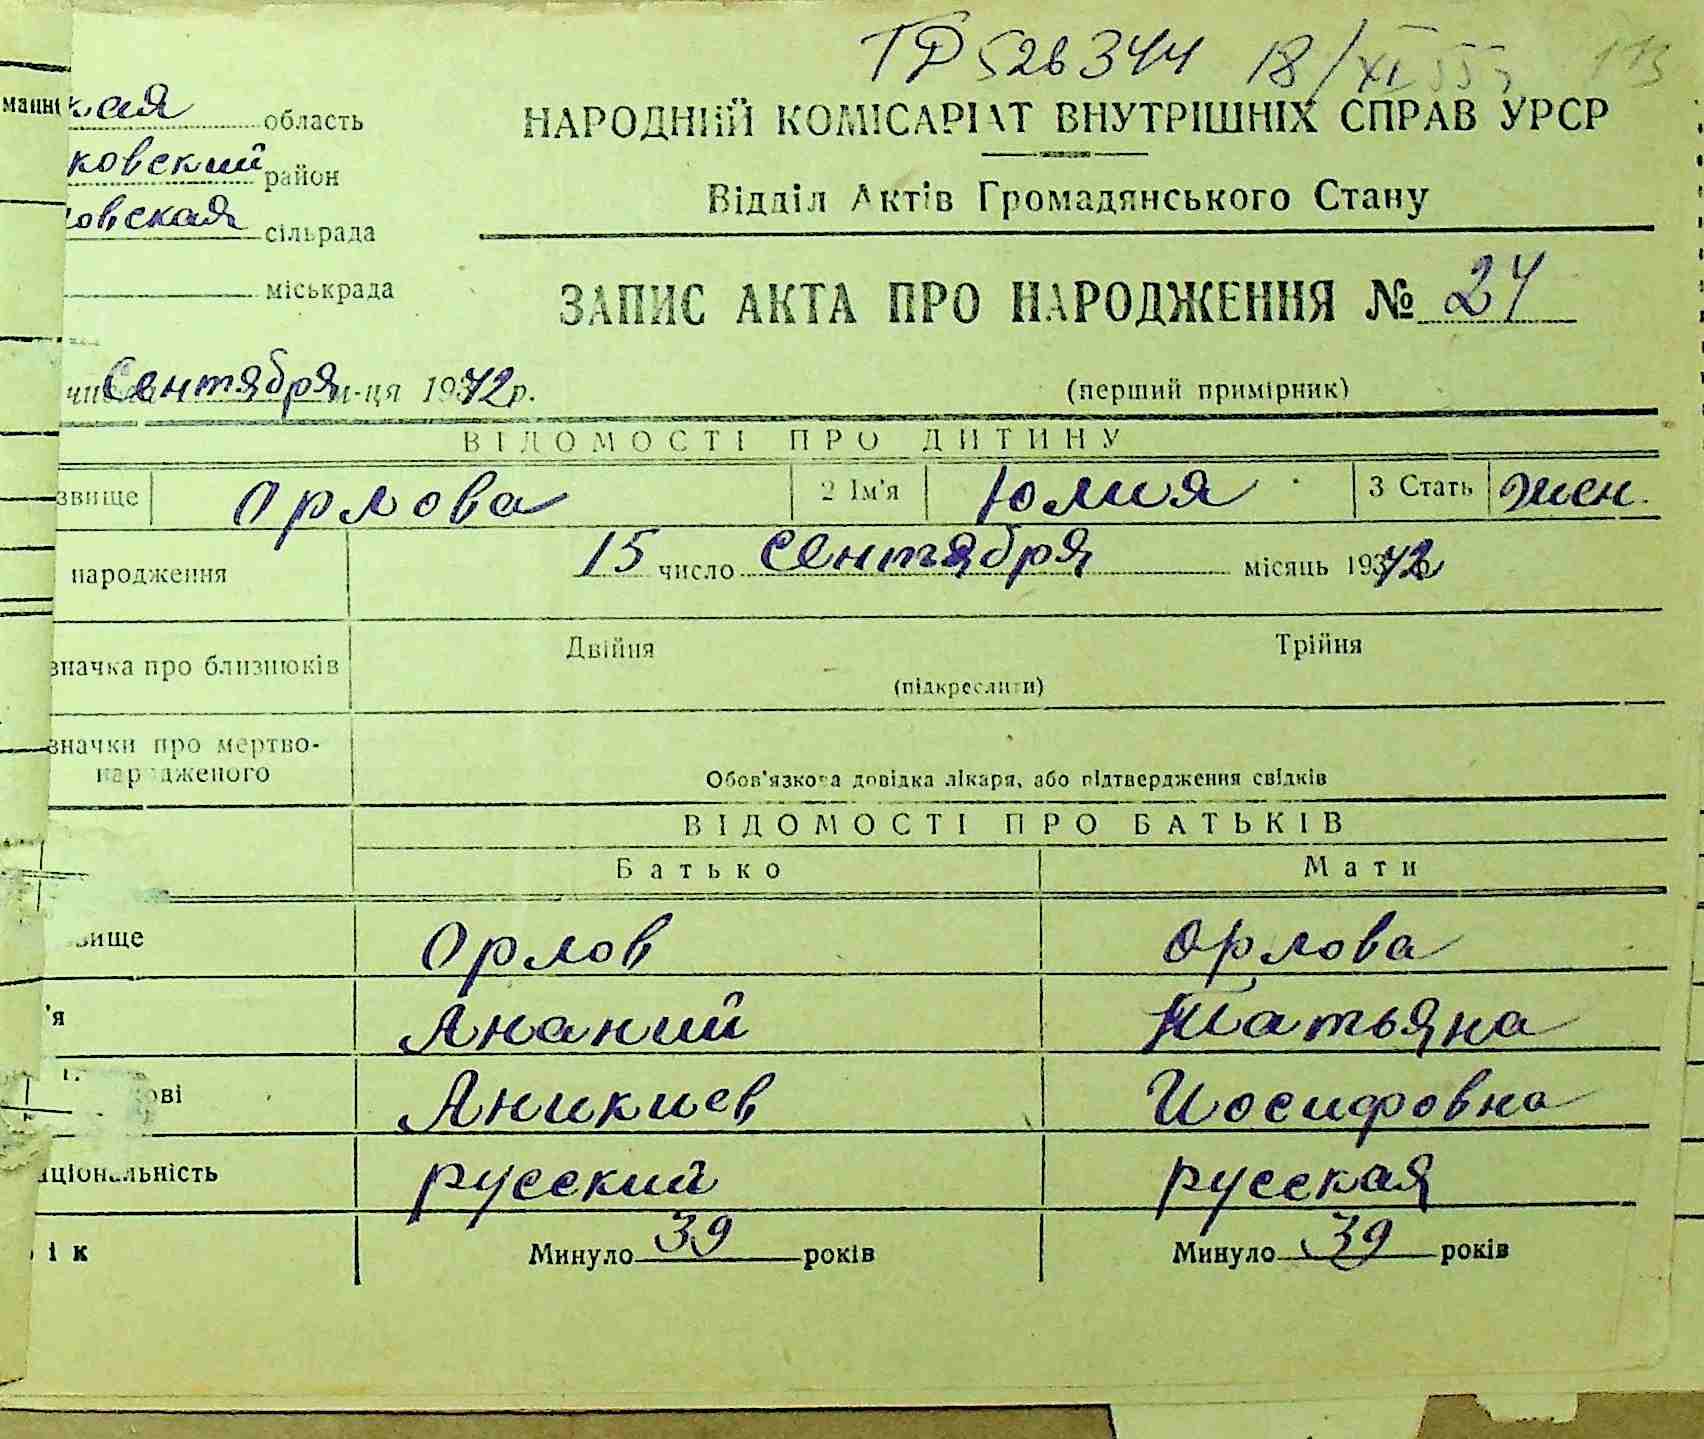 ТР 526344 18/XI 55 г. 113
кая область
ковский район
ловская сільрада
міськрада
НАРОДНИЙ КОМІСАРІАТ ВНУТРІШНІХ СПРАВ УРСР
Відділ Актів Громадянського Стану
ЗАПИС АКТА ПРО НАРОДЖЕННЯ № 24
числа Сентября м-ця 1942 р.
(перший примірник)
ВІДОМОСТІ ПРО ДИТИНУ
звище Орлова 2 Ім'я Юлия 3 Стать жен.
народження 15 число Сентября місяць 1942
значка про близнюків Двійня Трійня
(підкреслити)
значки про мертво-
народженого
Обов'язкова довідка лікаря, або підтвердження свідків
ВІДОМОСТІ ПРО БАТЬКІВ
Батько Мати
звище Орлов Орлова
'я Ананий Татьяна
ові Аникиев Иосифовна
ціональність русский русская
ік Минуло 39 років Минуло 39 років